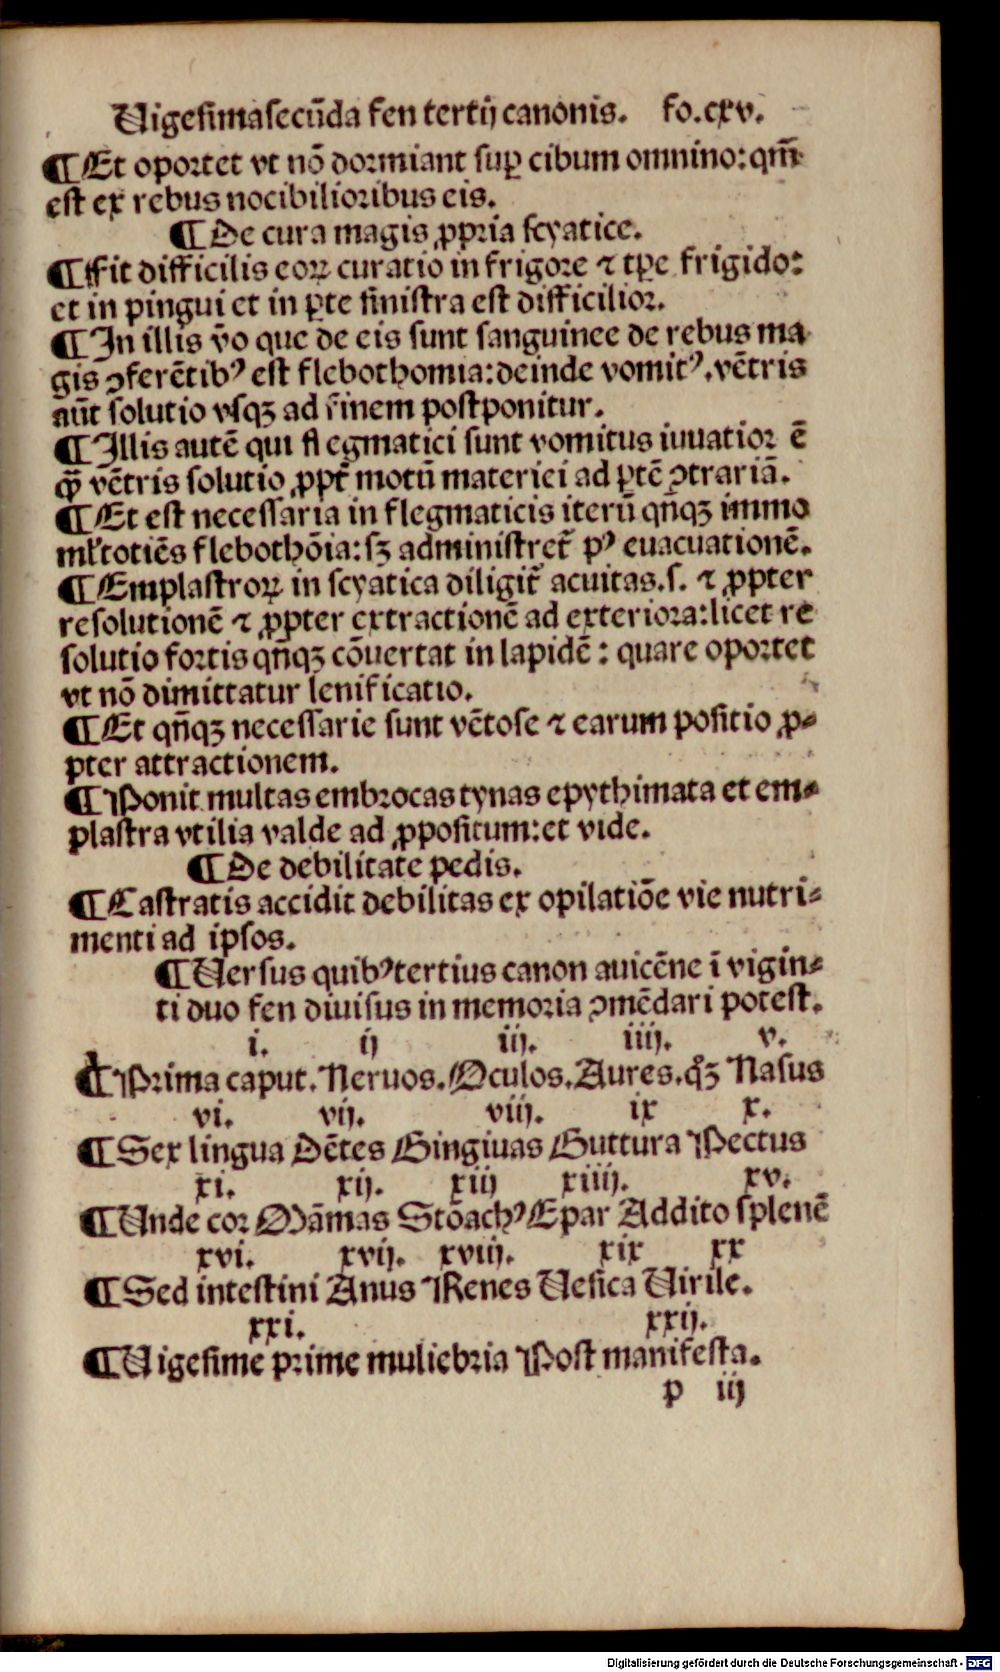 Uigesimasecūda fen tertij canonis. fo.cxv.
¶ Et oportet vt nō dormiant suꝑ cibum omnino: qm̄
est ex rebus nocibilioribus eis.
¶ De cura magis ꝓpria scyatice.
¶ Fit difficilis eoꝝ curatio in frigore ⁊ tꝑe frigido:
et in pingui et in ꝑte sinistra est difficilior.
¶ In illis v̄o que de eis sunt sanguinee de rebus ma
gis ꝯferētibꝰ est flebothomia: deinde vomitꝰ. vētris
aūt solutio vsqꝫ ad finem postponitur.
¶ Illis autē qui flegmatici sunt vomitus iuuatior ē
qͣꝫ vētris solutio ꝓpt̄ motū materiei ad ꝑtē ꝯtrariā.
¶ Et est necessaria in flegmaticis iterū qn̄qꝫ immo
ml̄totiēs flebothōia: sꝫ administret̄ pꝰ euacuationē.
¶ Emplastroꝝ in scyatica diligit̄ acuitas. s. ⁊ ꝓpter
resolutionē ⁊ ꝓpter extractionē ad exteriora: licet re
solutio fortis qn̄qꝫ cōuertat in lapidē: quare oportet
vt nō dimittatur lenificatio.
¶ Et qn̄qꝫ necessarie sunt vētose ⁊ earum positio ꝓ-
pter attractionem.
¶ Ponit multas embrocas tynas epythimata et em-
plastra vtilia valde ad ꝓpositum: et vide.
¶ De debilitate pedis.
¶ Castratis accidit debilitas ex opilatiōe vie nutri-
menti ad ipsos.
¶ Uersus quibꝰ tertius canon auicēne ī vigin-
ti duo fen diuisus in memoria ꝯmēdari potest.
i. ij iij. iiij. v.
¶ Prima caput. Neruos. Oculos. Aures. qͦꝫ Nasus
vi. vij. viij. ix x.
¶ Sex lingua Dētes Gingiuas Guttura Pectus
xi. xij. xiij xiiij. xv.
¶ Unde cor Māmas Stōachꝰ Epar Addito splenē
xvi. xvij. xviij. xix xx
¶ Sed intestini Anus Renes Uesica Uirile.
xxi. xxij.
¶ Uigesime prime muliebria Post manifesta.
p iij
Digitalisierung gefördert durch die Deutsche Forschungsgemeinschaft - DFG